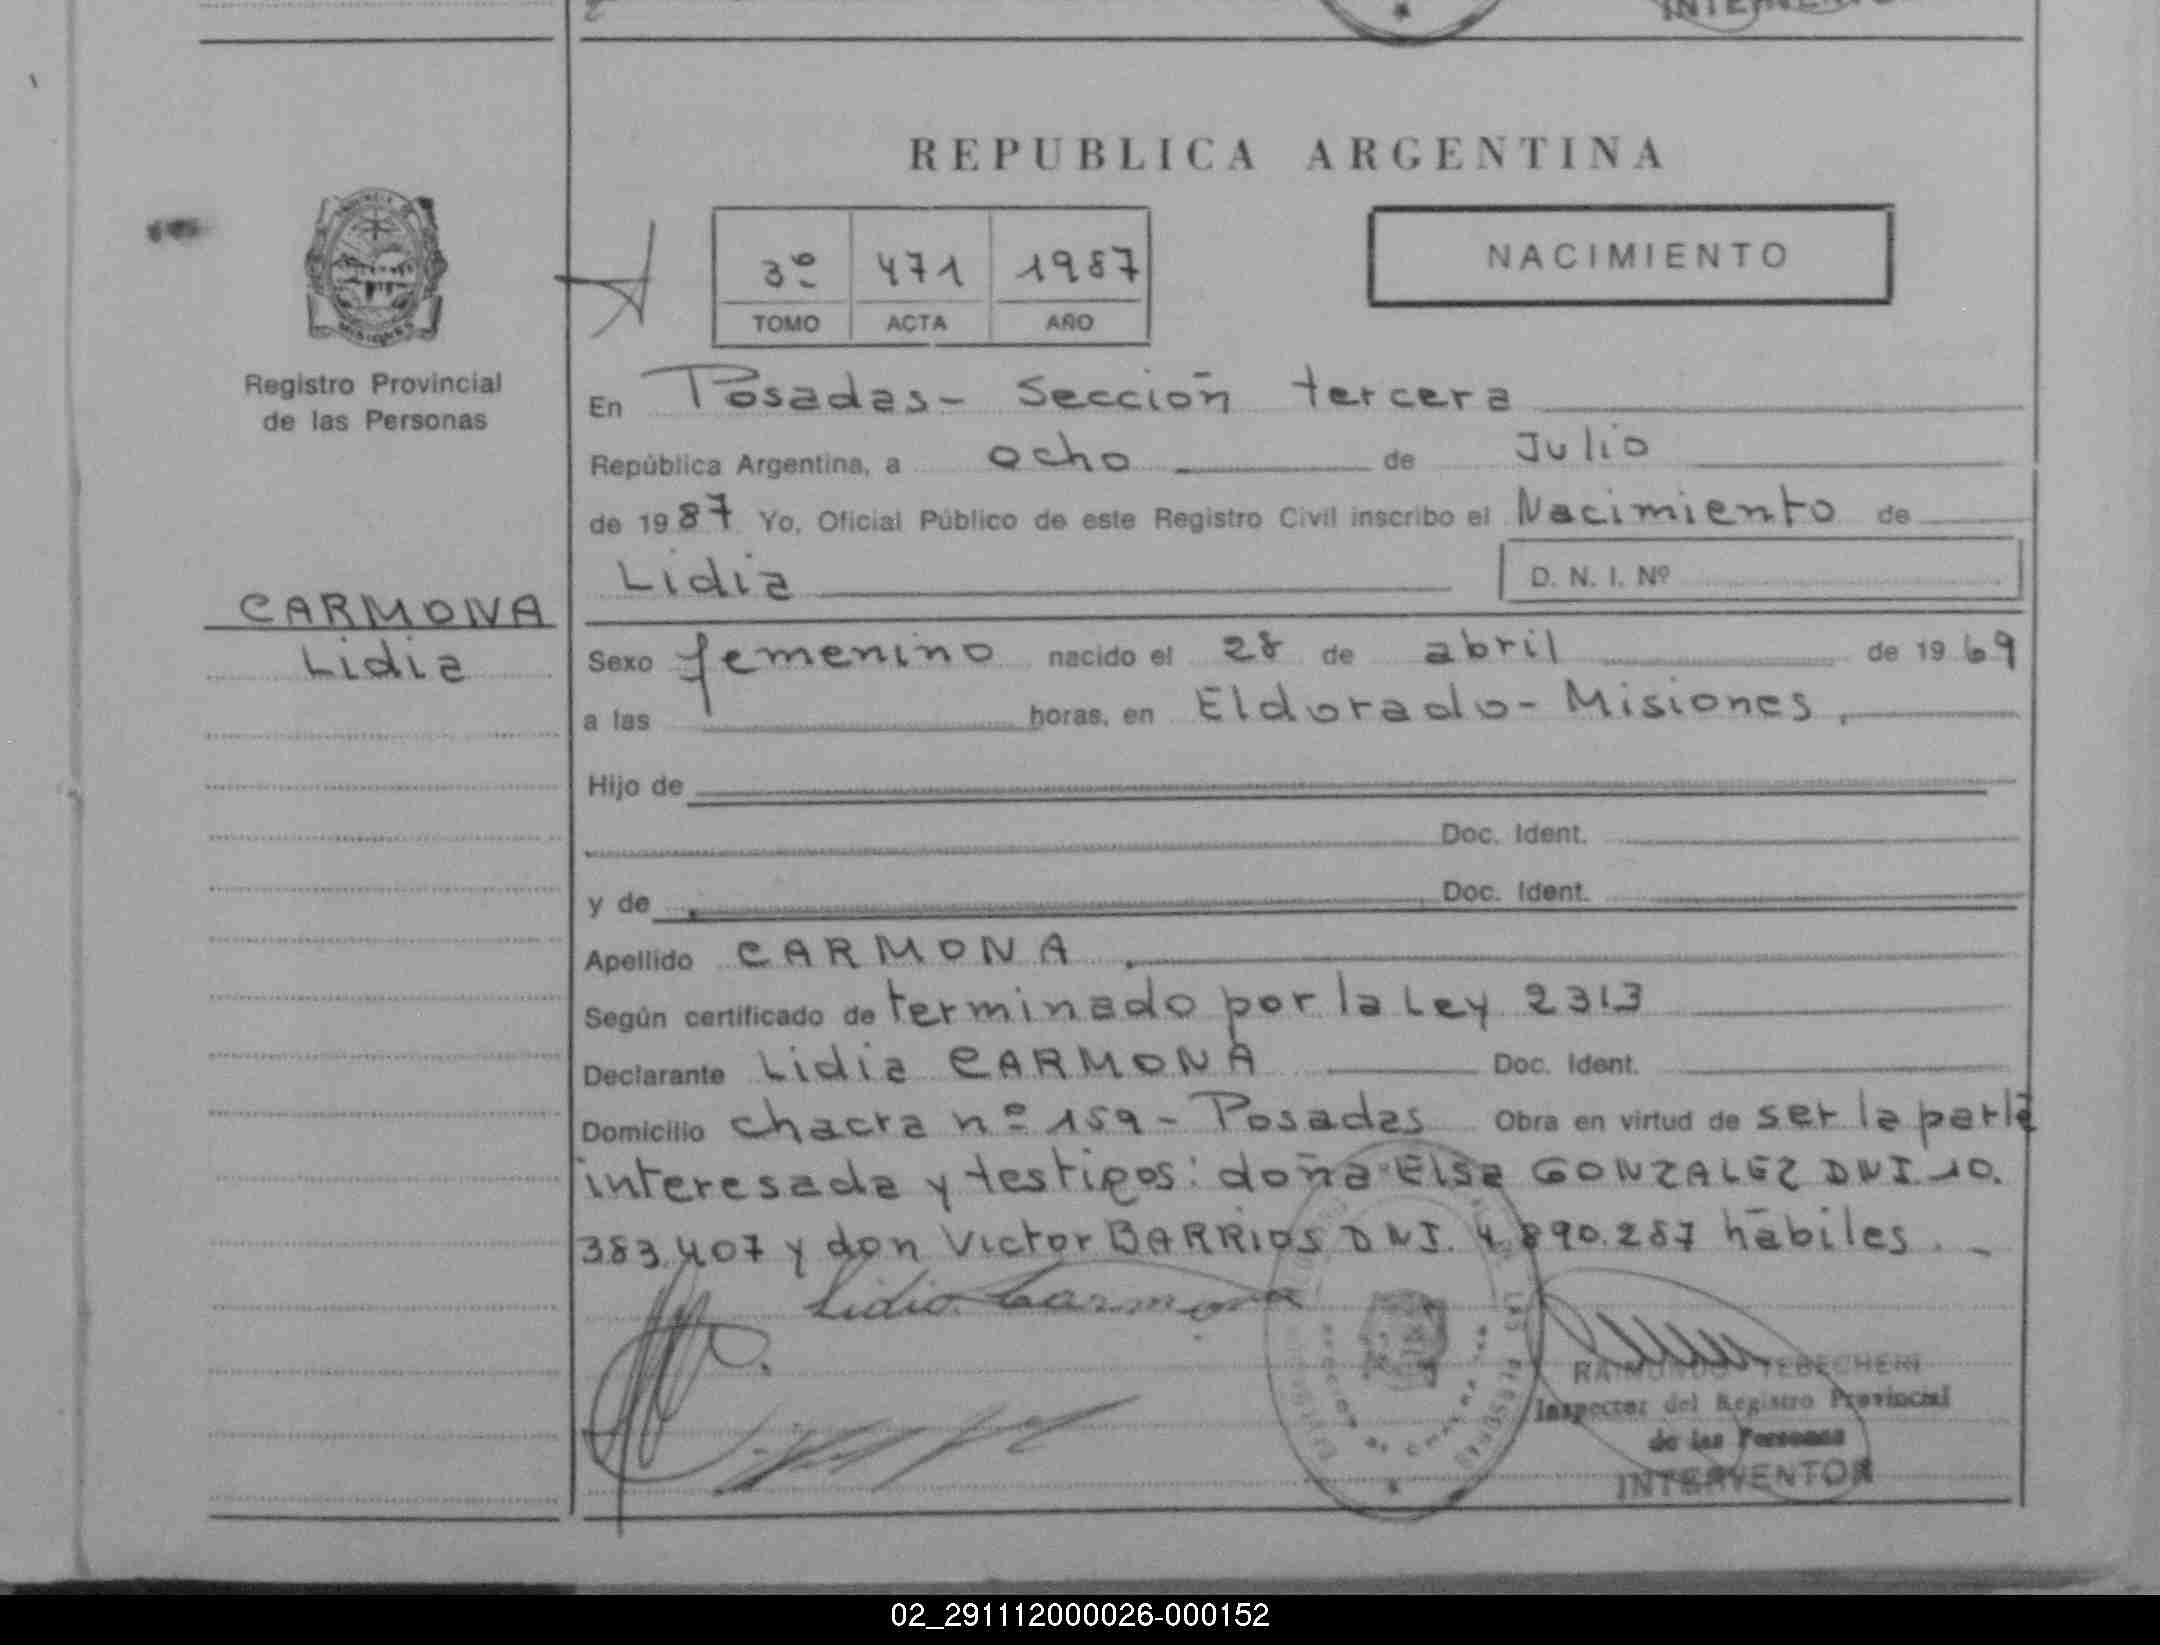 INTERVENTOR
REPUBLICA ARGENTINA
3º 471 1987
TOMO ACTA AÑO
NACIMIENTO
Registro Provincial
de las Personas
CARMONA
Lidia
En Posadas - Sección tercera
República Argentina, a ocho de Julio
de 1987 Yo, Oficial Público de este Registro Civil inscribo el Nacimiento de
Lidia D. N. I. Nº
Sexo femenino nacido el 28 de abril de 1969
a las horas, en Eldorado - Misiones,
Hijo de
Doc. Ident.
y de Doc. Ident.
Apellido CARMONA
Según certificado de terminado por la Ley 2313
Declarante Lidia CARMONA Doc. Ident.
Domicilio chacra nº 159 - Posadas Obra en virtud de ser la parte
interesada y testigos: doña Elsa GONZALEZ DNI. 10.
383.407 y don Victor BARRIOS DNI. 4.890.287 hábiles. -
Lidia Carmona
RAIMUNDO YEBECHERI
Inspector del Registro Provincial
de las Personas
INTERVENTOR
02_291112000026-000152